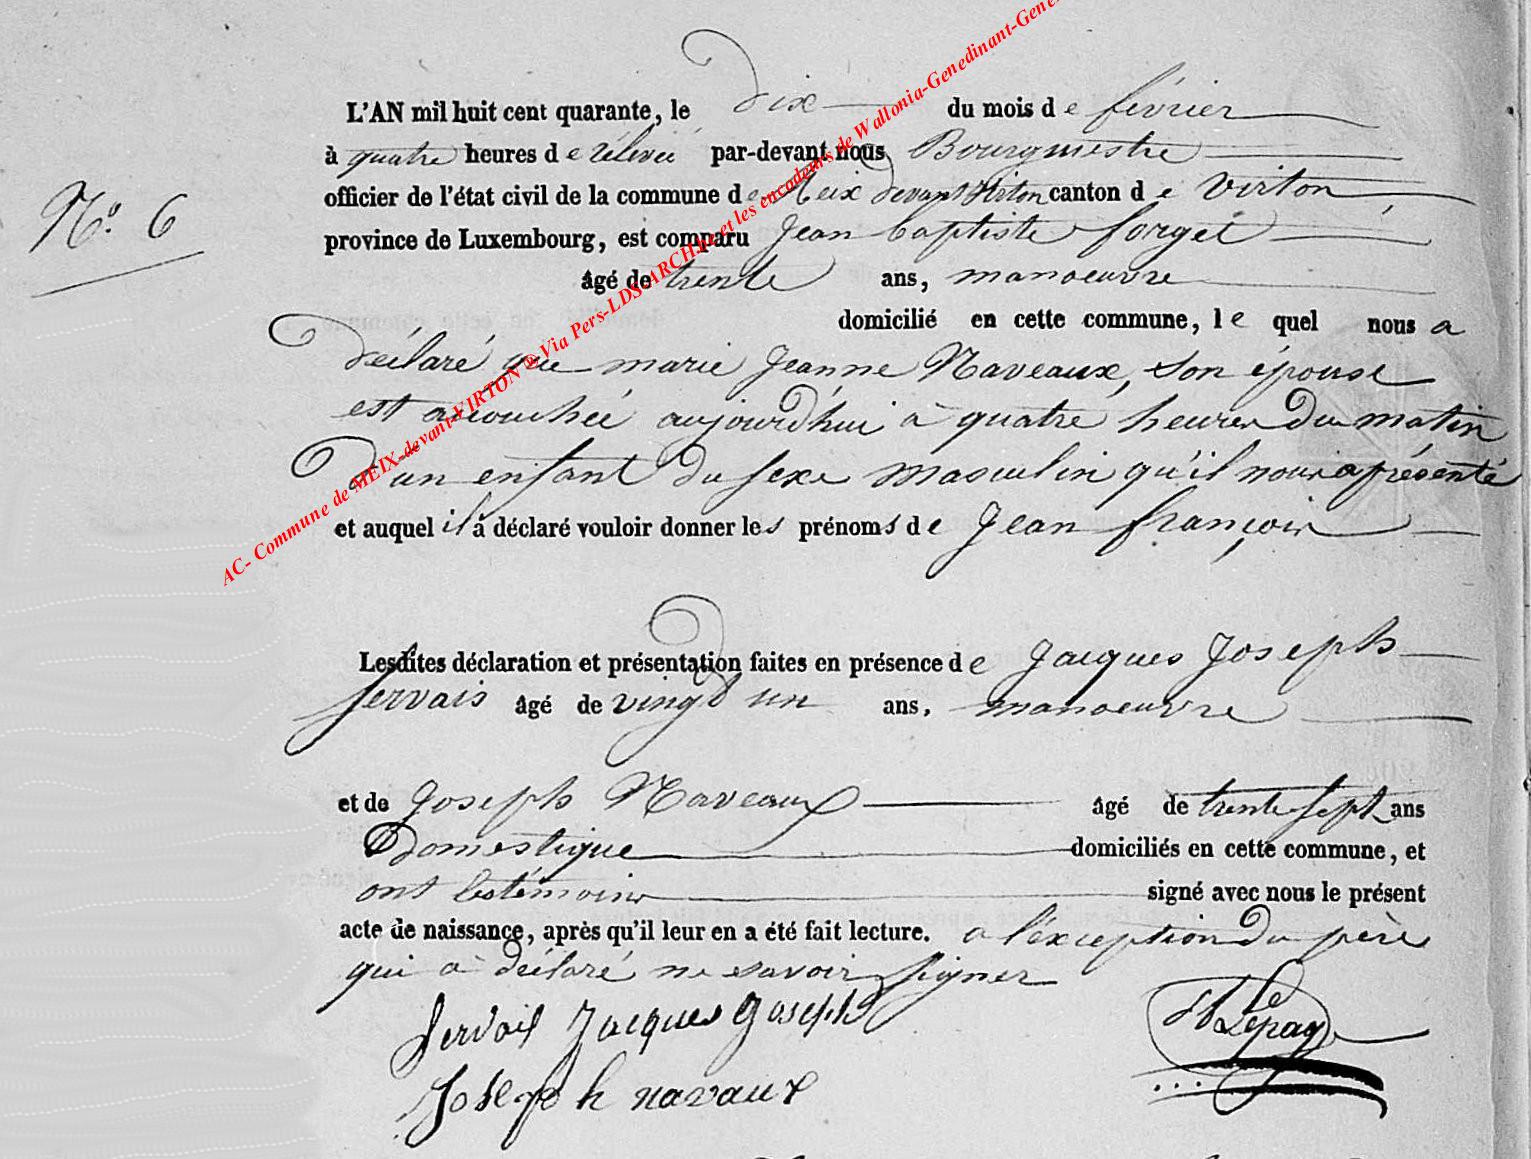 L'AN mil huit cent quarante, le dix du mois de février
à quatre heures de rélevée par-devant nous Bourgmestre
officier de l'état civil de la commune de Meix devant Virton canton de Virton,
N.o 6
province de Luxembourg, est comparu Jean baptiste forget
âgé de trente ans, manoeuvre
domicilié en cette commune, le quel nous a
déclaré que marie Jeanne Naveaux, son épouse
est accouchée aujourd'hui à quatre heures du matin
d'un enfant du sexe masculin qu'il nous a présenté
et auquel il a déclaré vouloir donner les prénoms de Jean françois
Lesdites déclaration et présentation faites en présence de Jacques Joseph
Servais âgé de vingt un ans, manoeuvre
et de Joseph Naveaux âgé de trente sept ans
Domestique domiciliés en cette commune, et
ont les témoins signé avec nous le présent
acte de naissance, après qu'il leur en a été fait lecture. a l'exception du père
qui a déclaré ne savoir signer
Servais Jacques Joseph
Lepage
Joseph navaux
AC- Commune de MEIX-devant-VIRTON ® Via Pers-LDS-ARCH.be et les encodeurs de Wallonia-Genedinant-Gene